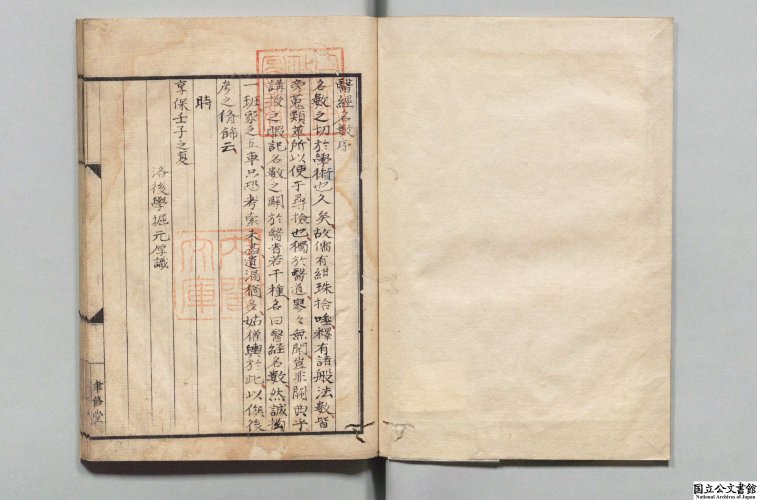 醫經名數序
名數之切於學術也久矣故儒有紺珠拾唾釋有諸般法數皆
旁蒐類萃所以便于尋撿也獨於醫道寥々無聞豈非闕典乎
講授之暇記名數之關於醫者若干種名曰醫經名數然誠
一班家之五車只恐考索未盡遺漏猶多姑僅於此以俟後
考之脩飾云
時
享保壬子之夏
洛後學堀元厚識
聿脩堂
大學
文庫
国立公文書館
National Archives of Japan